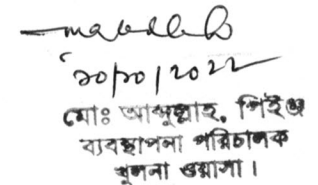 ২০/১০/2022
মোঃ আব্দুল্লাহ, পিইঞ্জ
ব্যবস্থাপনা পরিচালক
খুলনা ওয়াসা।